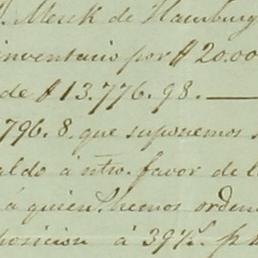 Merck de Hamburg
inventacio por $ 20.00
de $ 13.776.98. —
796.8. que suponemos
aldo á ntro. favor de l
á quien hemos orden
posicion á 39½. p